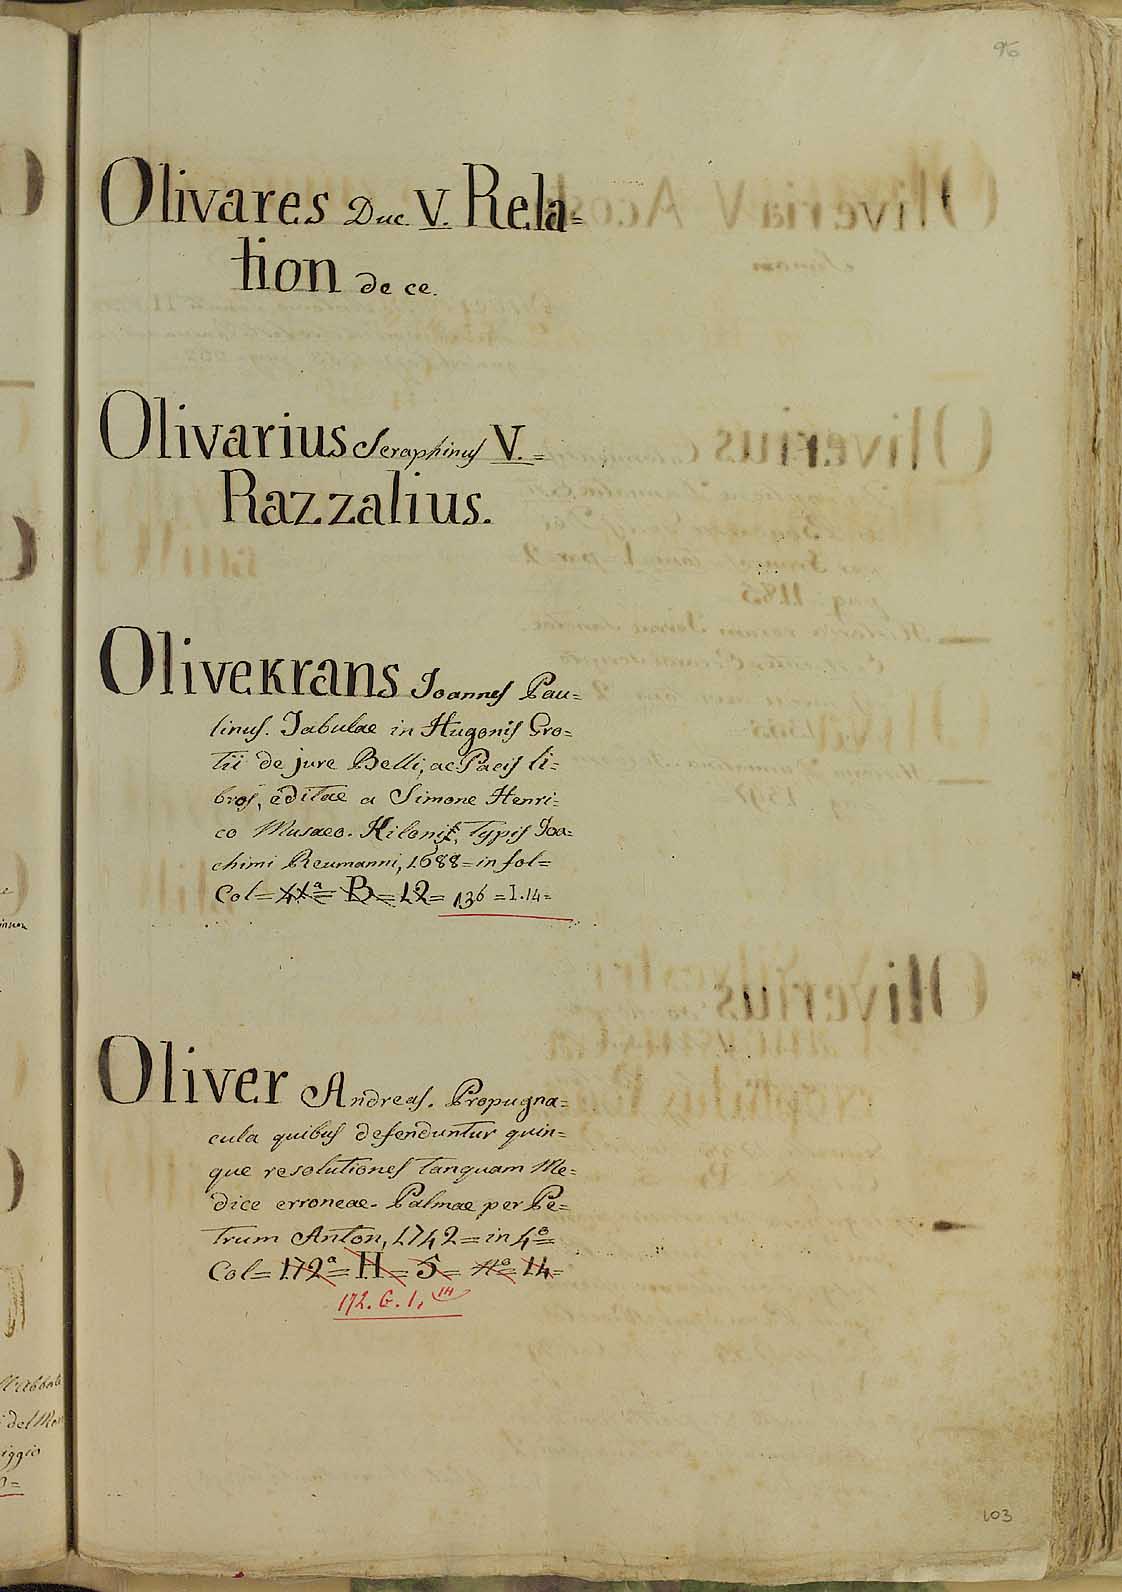 96
Olivares Duc V. Rela=
tion de ce.
Olivarius Seraphinus V. =
Razzalius.
Olivekrans Joannes Pau=
linus. Tabulae in Hugonis Gro=
tii de jure Belli, ac Pacis li=
bros, editae a Simone Henri=
co Musaeo. Kilonis, Typis Joa=
chimi Reumanni, 1688= in fol=
Col= 41ª= B= 12= 136 = I.14=
Oliver Andreas. Propugna=
cula quibus defenduntur quin=
que resolutiones tanquam Me=
dice erroneae. Palmae per Pe=
trum Anton, 1742= in 4º=
Col= 172ª= H= 5= 4º= 14=
172. G. 1, 14
103
ll'abbate
del Mon
iggio